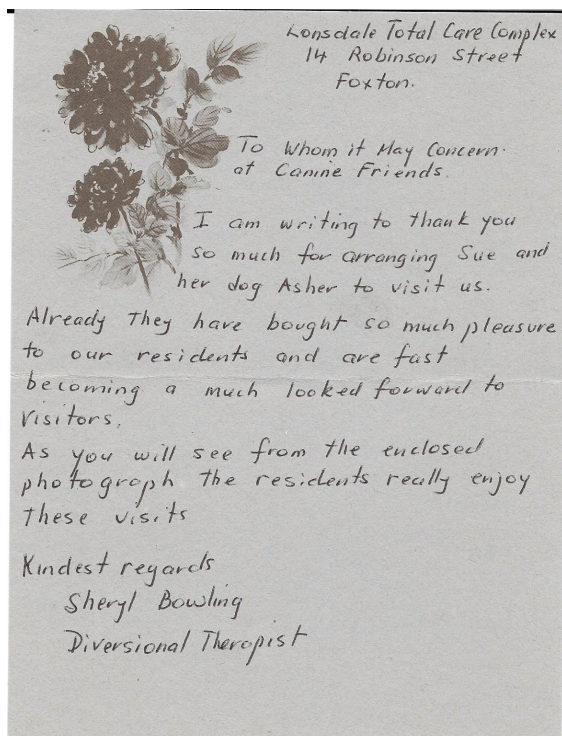 Lonsdale Total Care Complex
14 Robinson Street
Foxton.
To Whom it May Concern.
at Canine Friends.
I am writing to thank you
so much for arranging Sue and
her dog Asher to visit us.
Already they have bought so much pleasure
to our residents and are fast
becoming a much looked forward to
visitors.
As you will see from the enclosed
photograph the residents really enjoy
these visits
Kindest regards
Sheryl Bowling
Diversional Therapist